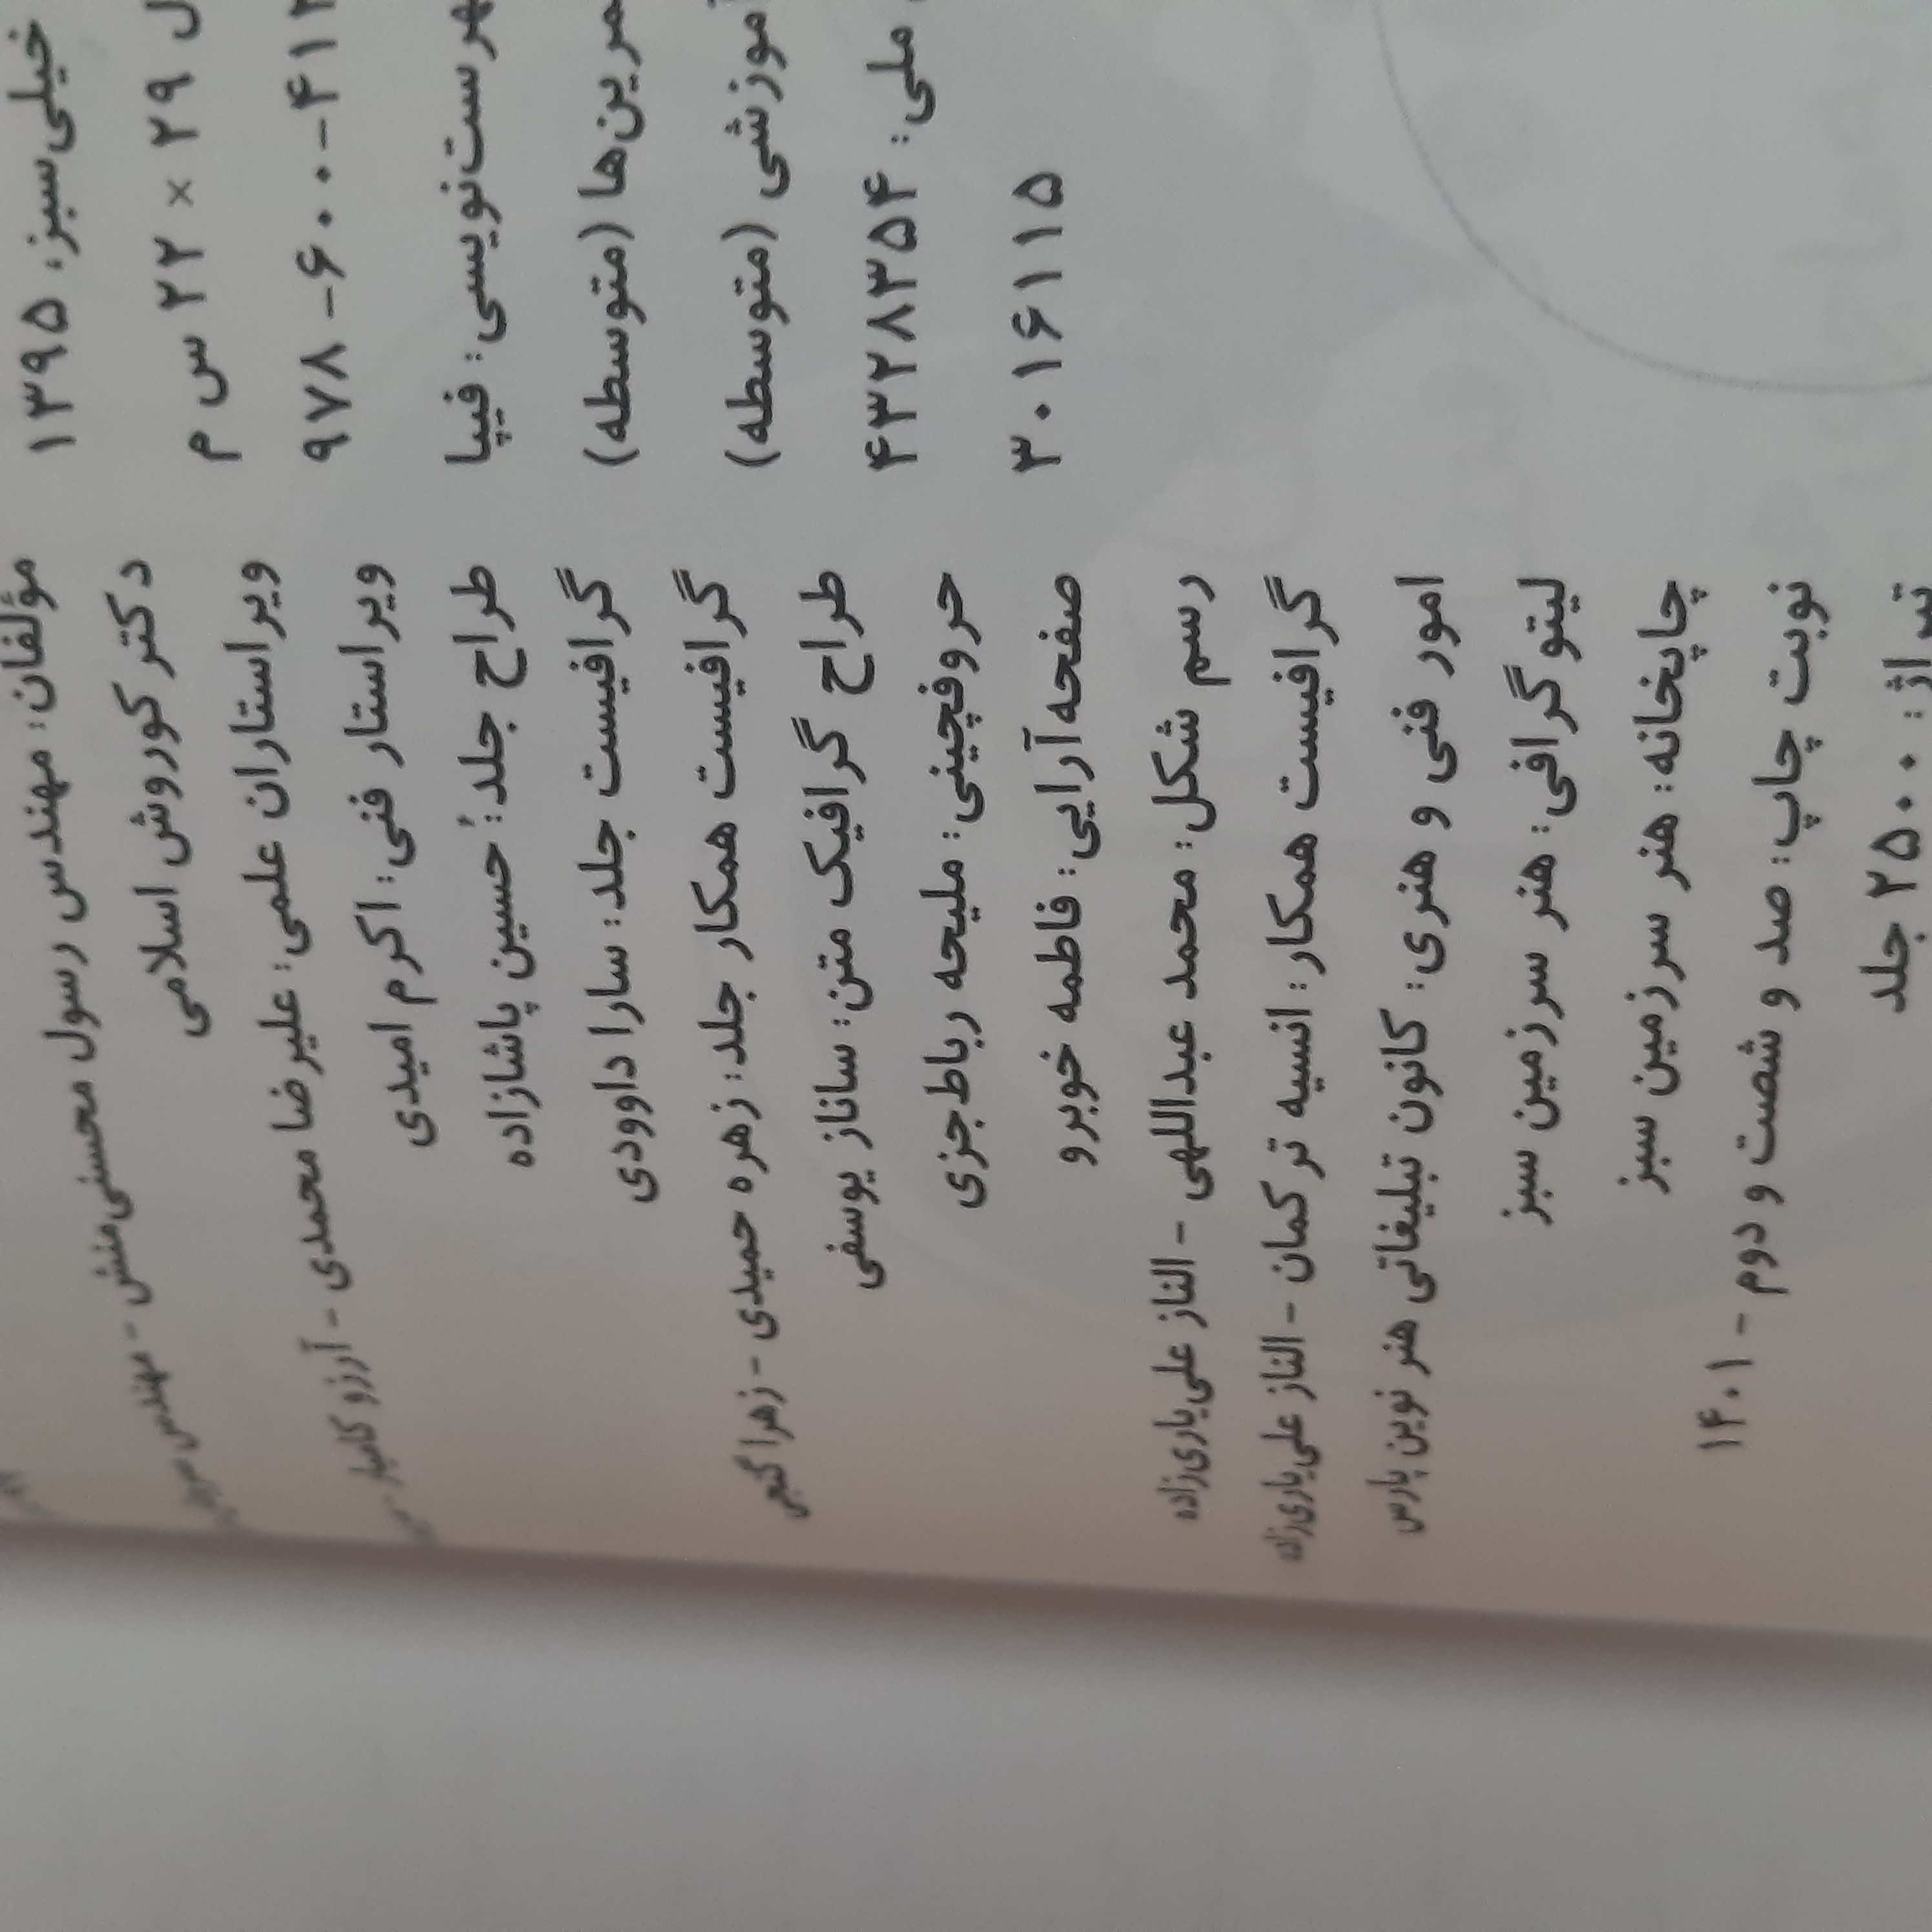 خیلی‌سبز، ۱۳۹۵
۲۲ × ۲۹ س م
۹۷۸-۶۰۰-۴۱۲
فیپا
(متوسطه)
(متوسطه)
ملی: ۴۳۲۸۳۵۴
۳۰۱۶۱۱۵
مؤلفان: مهندس رسول محسنی‌منش - مهندس
دکتر کوروش اسلامی
ویراستاران علمی: علیرضا محمدی - آرزو کامیار
ویراستار فنی: اکرم امیدی
طراح جلد: حسین پاشازاده
گرافیست جلد: سارا داوودی
گرافیست همکار جلد: زهره حمیدی - زهرا گنجی
طراح گرافیک متن: ساناز یوسفی
حروفچینی: ملیحه رباط‌جزی
صفحه‌آرایی: فاطمه خوبرو
رسم شکل: محمد عبداللهی - الناز علی‌یاری‌زاده
گرافیست همکار: انسیه ترکمان - الناز علی‌یاری‌زاده
امور فنی و هنری: کانون تبلیغاتی هنر نوین پارس
لیتوگرافی: هنر سرزمین سبز
چاپخانه: هنر سرزمین سبز
نوبت چاپ: صد و شصت و دوم - ۱۴۰۱
تیراژ: ۲۵۰۰ جلد